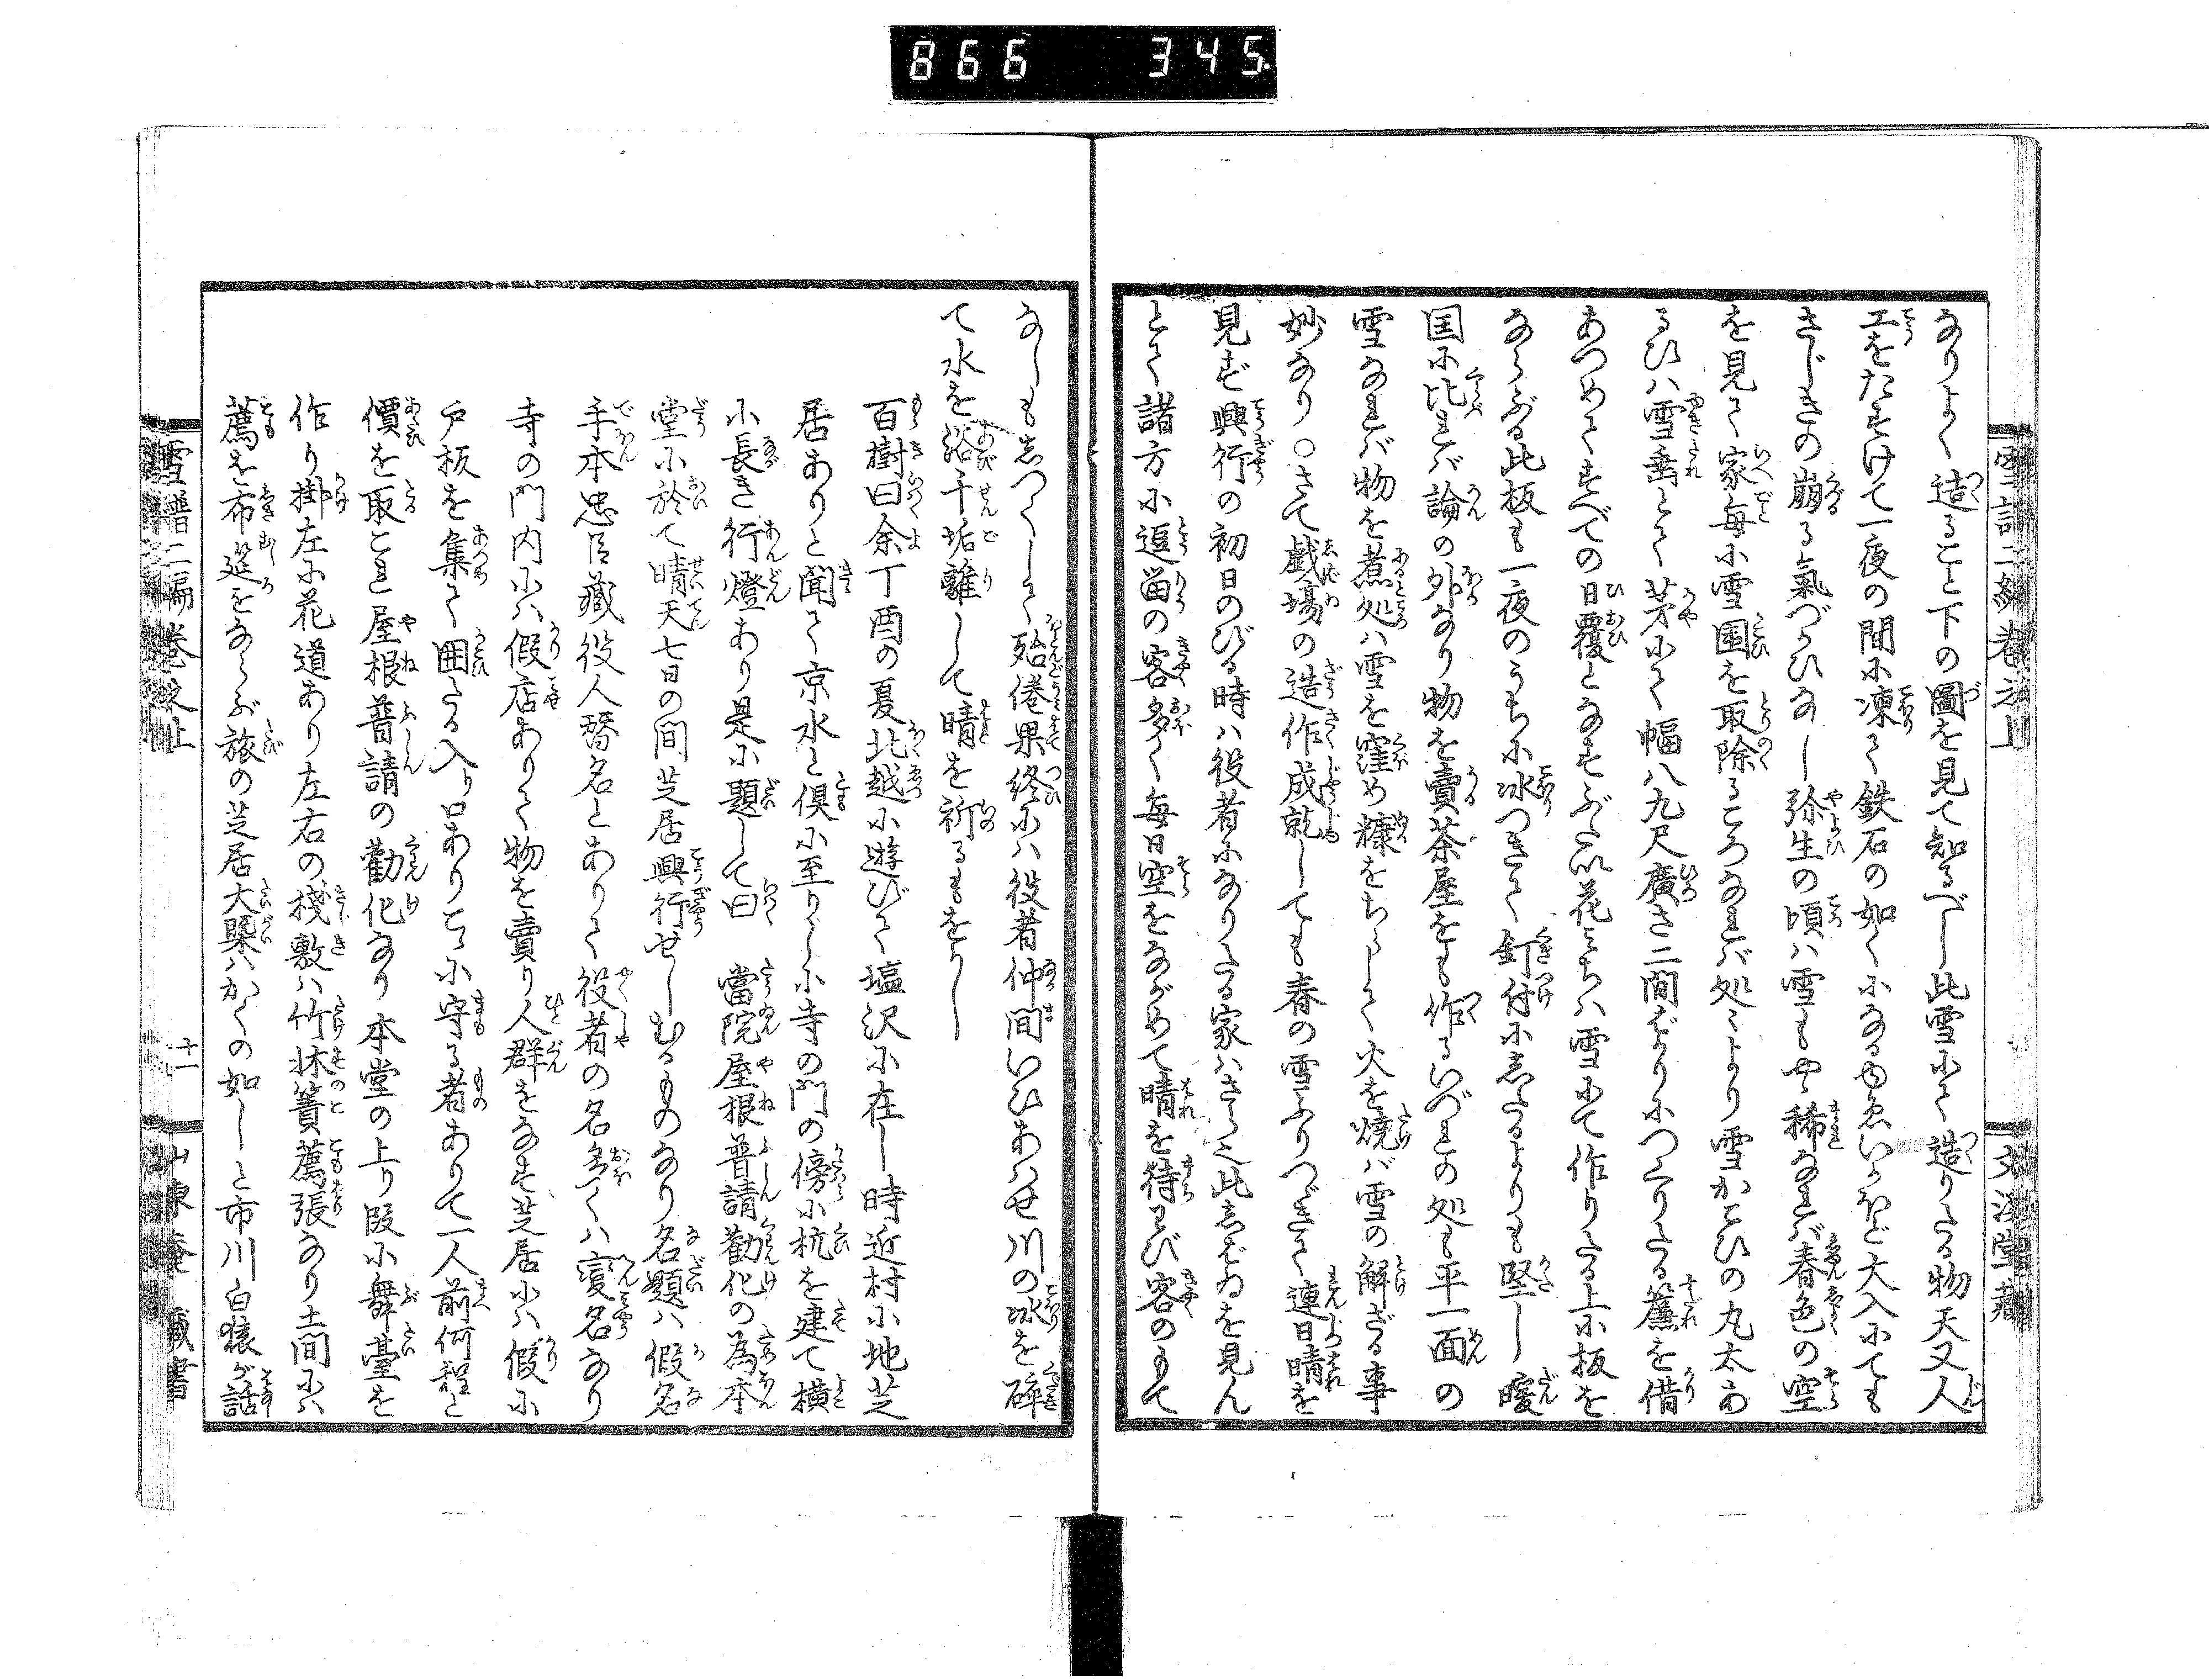 866 345
雪譜二編巻之上
文渓堂蔵
なりよく造ること下の圖を見て知るべし此雪にて造りたる物天又人
工をたすけて一夜の間に凍て鉄石の如くになるゆゑいかほど大入にても
さじきの崩る氣づかひなし弥生の頃は雪もやゝ稀なれば春色の空
を見て家毎に雪囲を取除るころなれば処々より雪かこひの丸太あ
るひは雪垂とて茅にて幅八九尺廣さ二間ばかりにつくりたる簾を借
あつめてすべての日覆となすぶたい花みちは雪にて作りたる上に板を
ならぶる此板も一夜のうちに冰つきて釘付にしたるよりも堅し暖
国に比れば論の外なり物を賣茶屋をも作るいづれの処も平一面の
雪なれば物を煮処は雪を窪め糠をちらして火を焼ば雪の解ざる事
妙なり○さて戯場の造作成就しても春の雪ふりつゞきて連日晴を
見ず興行の初日のびる時は役者になりたる家はさら也此しばゐを見ん
とて諸方に逗畄の客多く毎日空をながめて晴を待わび客のもて
なしもしつくして殆倦果終には役者仲間いひあはせ川の冰を砕
て水を浴千垢離して晴を祈るもをかし
百樹曰余丁酉の夏北越に遊びて塩沢に在し時近村に地芝
居ありと聞て京水と倶に至りしに寺の門の傍に杭を建て横
に長き行燈あり是に題して曰 當院屋根普請勸化の為本
堂に於て晴天七日の間芝居興行せしむるものなり名題は假名
手本忠臣蔵役人替名とありて役者の名多くは變名なり
寺の門内には假店ありて物を賣り人群をなす芝居には假に
戸板を集て囲たる入り口ありこゝに守る者ありて一人前何程と
價を取これ屋根普請の勸化なり本堂の上り段に舞臺を
作り掛左に花道あり左右の桟敷は竹牀簀薦張なり土間には
薦を布筵をならぶ旅の芝居大槩はかくの如しと市川白猿が話
雪譜二編巻之上
十一
山東庵蔵書